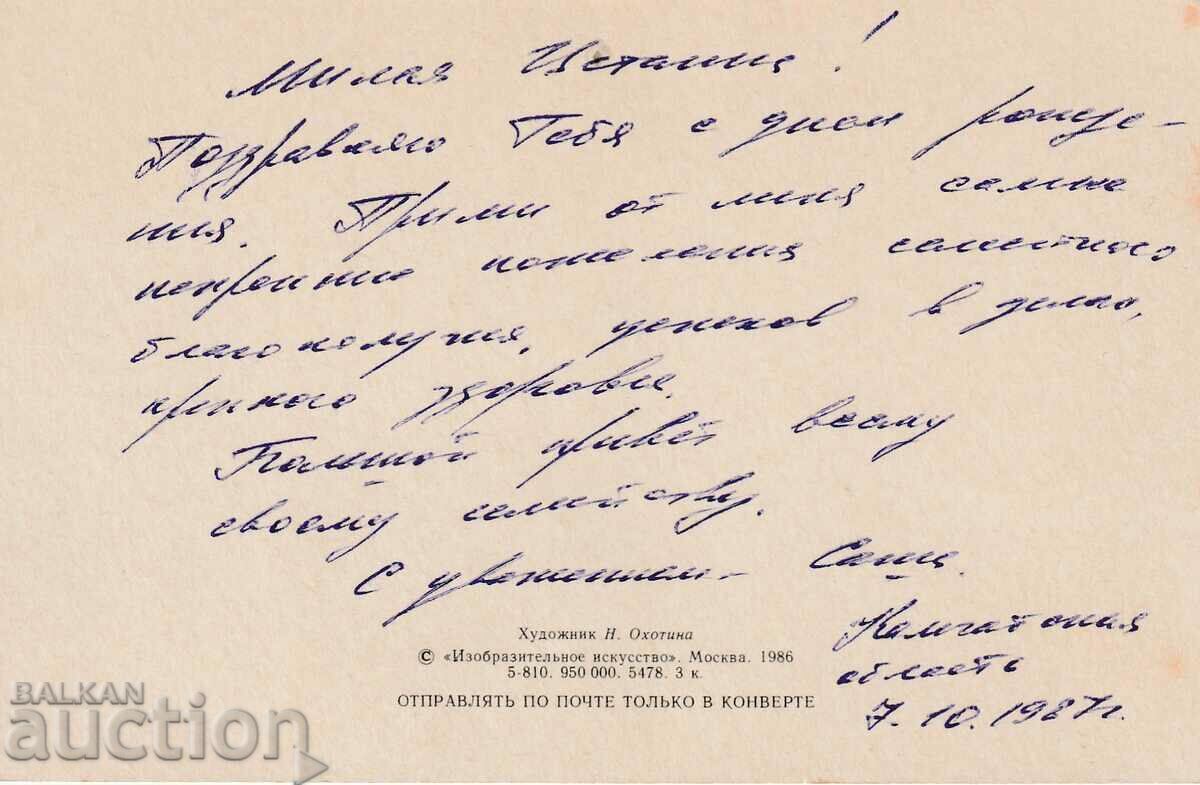 Милая Цветанна!
Поздравляю Тебя с днем рожде-
ния. Прими от меня самые
искренние пожелания семейного
благополучия, успехов в делах,
крепкого здоровья.
Большой привет всему
своему семейству.
С уважением – Саша.
Камчатская
область
7.10.1987г.
Художник Н. Охотина
© «Изобразительное искусство». Москва. 1986
5-810. 950 000. 5478. 3 к.
ОТПРАВЛЯТЬ ПО ПОЧТЕ ТОЛЬКО В КОНВЕРТЕ
BALKAN
auction